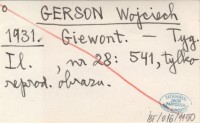 GERSON Wojciech
1931. Giewont. — Tyg.
Il., nr 28: 541, tylko
reprod. obrazu.